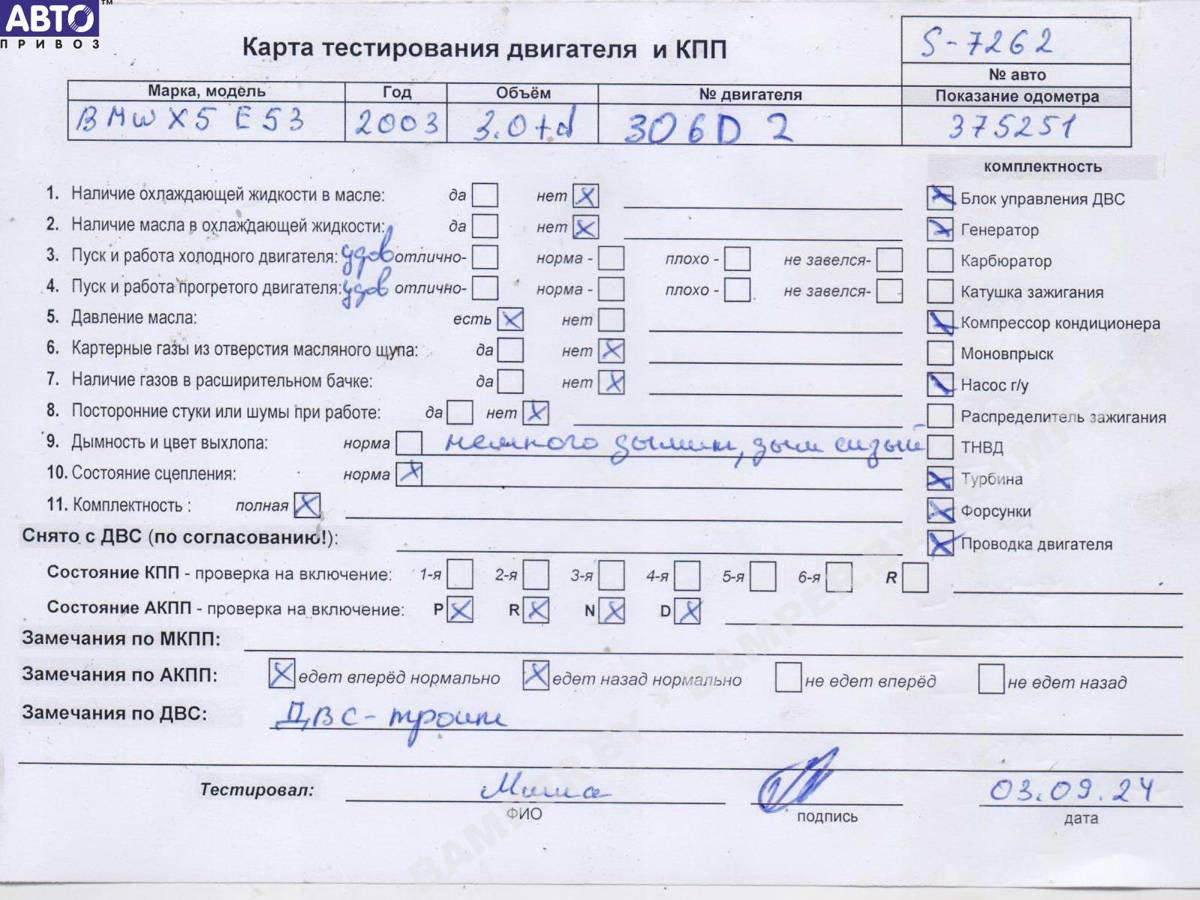 АВТО™
ПРИВОЗ
Карта тестирования двигателя и КПП
S-7262
№ авто
Марка, модель Год Объём № двигателя Показание одометра
BMW X5 E53 2003 3.0td 306D 2 375251
комплектность
1. Наличие охлаждающей жидкости в масле: да нет X
2. Наличие масла в охлаждающей жидкости: да нет X
3. Пуск и работа холодного двигателя: удов отлично- норма - плохо - не завелся-
4. Пуск и работа прогретого двигателя: удов отлично- норма - плохо - не завелся-
5. Давление масла: есть X нет
6. Картерные газы из отверстия масляного щупа: да нет X
7. Наличие газов в расширительном бачке: да нет X
8. Посторонние стуки или шумы при работе: да нет X
9. Дымность и цвет выхлопа: норма немного дымит, дым сизый
10. Состояние сцепления: норма X
11. Комплектность : полная X
X Блок управления ДВС
X Генератор
Карбюратор
Катушка зажигания
X Компрессор кондиционера
Моновпрыск
X Насос г/у
Распределитель зажигания
ТНВД
X Турбина
X Форсунки
X Проводка двигателя
Снято с ДВС (по согласованию!):
Состояние КПП - проверка на включение: 1-я 2-я 3-я 4-я 5-я 6-я R
Состояние АКПП - проверка на включение: P X R X N X D X
Замечания по МКПП:
Замечания по АКПП: X едет вперёд нормально X едет назад нормально не едет вперёд не едет назад
Замечания по ДВС: ДВС-троит
Тестировал: Миша 03.09.24
ФИО подпись дата
BAMPER.BY